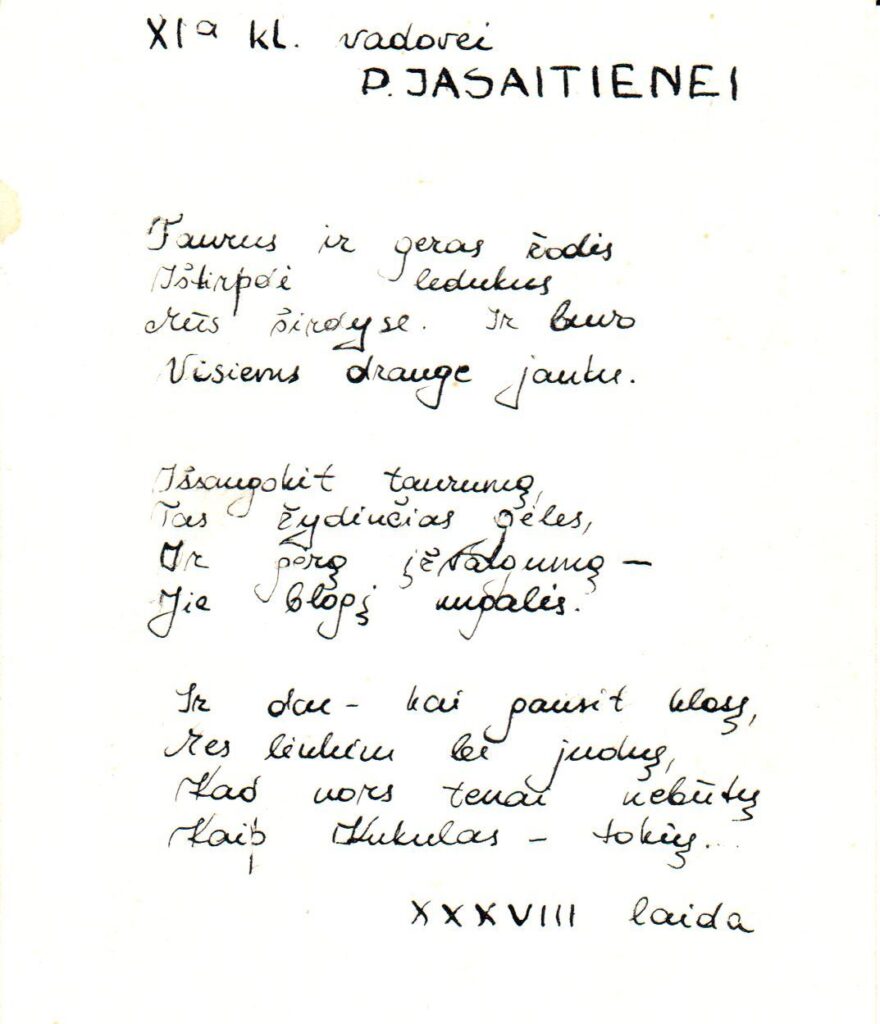 XIa kl. vadovei
P. JASAITIENEI
Taurus ir geras žodis
Ištirpdė ledukus
Mūs širdyse. Ir buvo
Visiems drauge jauku.
Išsaugokit taurumą,
Tas žydinčias gėles,
Ir gerą įžvalgumą –
Jie blogį nugalės.
Ir dar – kai gausit klasę,
Mes linkim bei
Kad nors tenai nebūtų
Kaip Kukulas – tokių...
XXXVIII laida